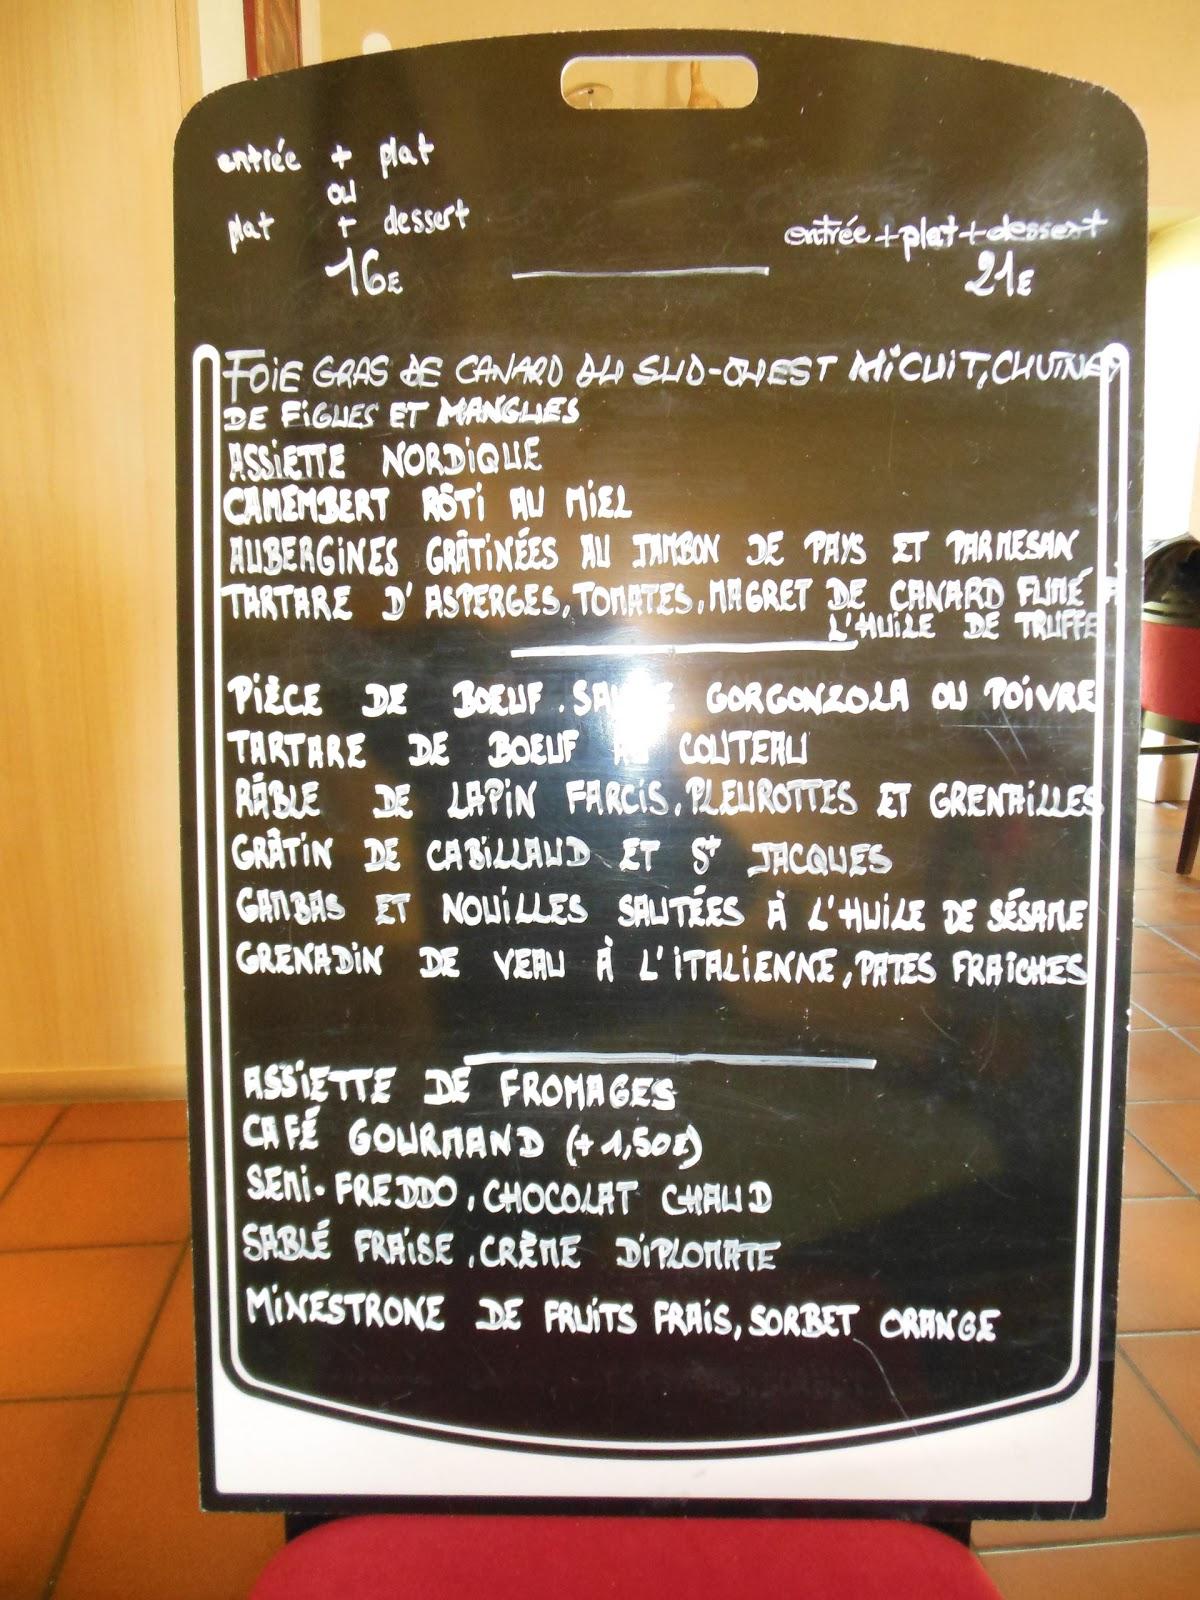 entrée + plat
ou
plat + dessert
16E
entrée + plat + dessert
21E
FOIE GRAS DE CANARD DU SUD-OUEST MICUIT, CHUTNEY
DE FIGUES ET MANGUES
ASSIETTE NORDIQUE
CAMEMBERT RÔTI AU MIEL
AUBERGINES GRÂTINÉES AU JAMBON DE PAYS ET PARMESAN
TARTARE D'ASPERGES, TOMATES, MAGRET DE CANARD FUMÉ À
L'HUILE DE TRUFFE
PIÈCE DE BOEUF. SAUCE GORGONZOLA OU POIVRE
TARTARE DE BOEUF AU COUTEAU
RÂBLE DE LAPIN FARCIS, PLEUROTTES ET GRENAILLES
GRÂTIN DE CABILLAUD ET St JACQUES
GAMBAS ET NOUILLES SAUTÉES À L'HUILE DE SÉSAME
GRENADIN DE VEAU À L'ITALIENNE, PATES FRAICHES
ASSIETTE DE FROMAGES
CAFÉ GOURMAND (+ 1,50E)
SEMI-FREDDO, CHOCOLAT CHAUD
SABLÉ FRAISE, CRÈME DIPLOMATE
MINESTRONE DE FRUITS FRAIS, SORBET ORANGE